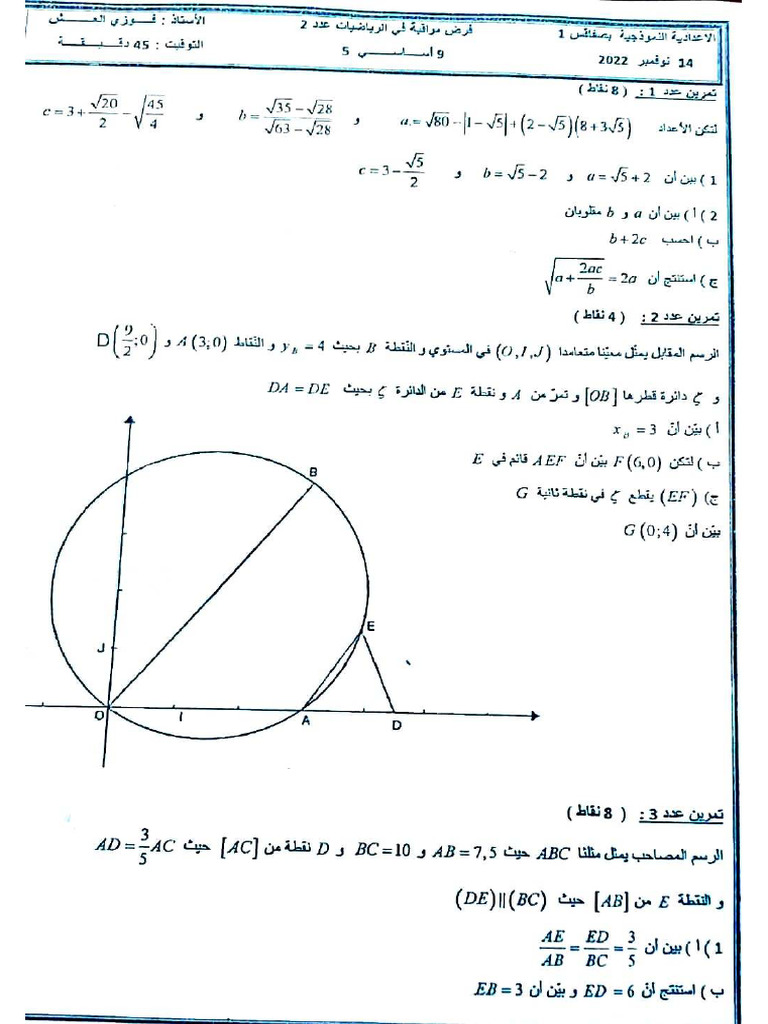 الاعدادية النموذجية بصفاقس 1
14 نوفمبر 2022
فرض مراقبة في الرياضيات عدد 2
9 أساسي 5
الأستاذ : فوزي العش
التوقيت : 45 دقيقة
تمرين عدد 1 : ( 8 نقاط )
لتكن الأعداد a = √80 − |1 − √5| + (2 − √5)(8 + 3√5) و b = (√35 − √28)/(√63 − √28) و c = 3 + √20/2 − √(45/4)
1 ) بين أن a = √5 + 2 و b = √5 − 2 و c = 3 − √5/2
2 ) أ ) بين أن a و b مقلوبان
ب ) احسب b + 2c
ج ) استنتج أن √(a + 2ac/b) = 2a
تمرين عدد 2 : ( 4 نقاط )
الرسم المقابل يمثل معينا متعامدا (O, I, J) في المستوي و النقطة B بحيث y_B = 4 و النقاط A (3;0) و D (9/2 ;0)
و ζ دائرة قطرها [OB] و تمر من A و نقطة E من الدائرة ζ بحيث DA = DE
أ ) بين أن x_B = 3
ب ) لتكن F (6,0) بين أن AEF قائم في E
ج) (EF) يقطع ζ في نقطة ثانية G
بين أن G (0;4)
B
E
J
O
I
A
D
تمرين عدد 3 : ( 8 نقاط )
الرسم المصاحب يمثل مثلثا ABC حيث AB = 7,5 و BC = 10 و D نقطة من [AC] حيث AD = 3/5 AC
و النقطة E من [AB] حيث (DE) || (BC)
1 ) أ ) بين أن AE/AB = ED/BC = 3/5
ب ) استنتج أن ED = 6 و بين أن EB = 3